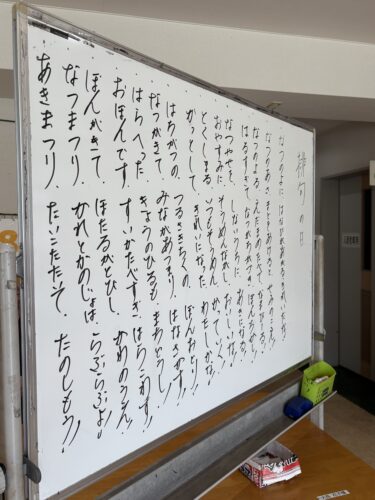 俳句の日
なつのよに はなびがあがる きれいだな
なつのあさ せみのこえ!
なつのよる えだまめたべて なまびーる!
はるすぎて なつがちかづき
なつやせを しないうちに あきになる
おやすみに そうめんながし おいしいな!
とくしまる いつもそうめん かっていく
かっとして きれいになった わたしかな!
はちがつの つるさき ぼんおどり!
なつがきて みながあつまり はなさかす!
はらへった きょうのひるも
おぼんです すいかたべすぎ はらこわす!
ぼんがきて、ほたるがとびし かわのうえ!
なつまつり、かれとかのじょは、らぶらぶよ!
あきまつり、たいこたたいて、たのしもう!